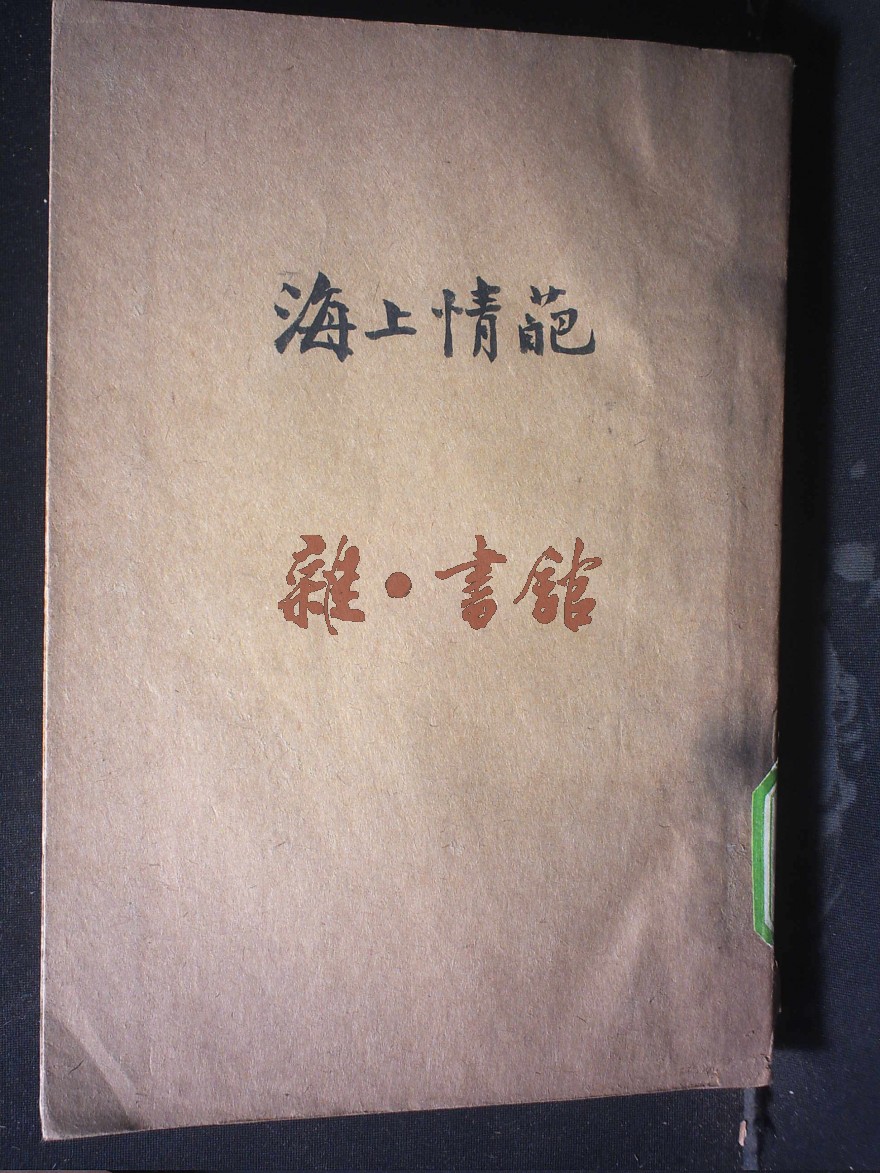 海上情葩
雜·書館